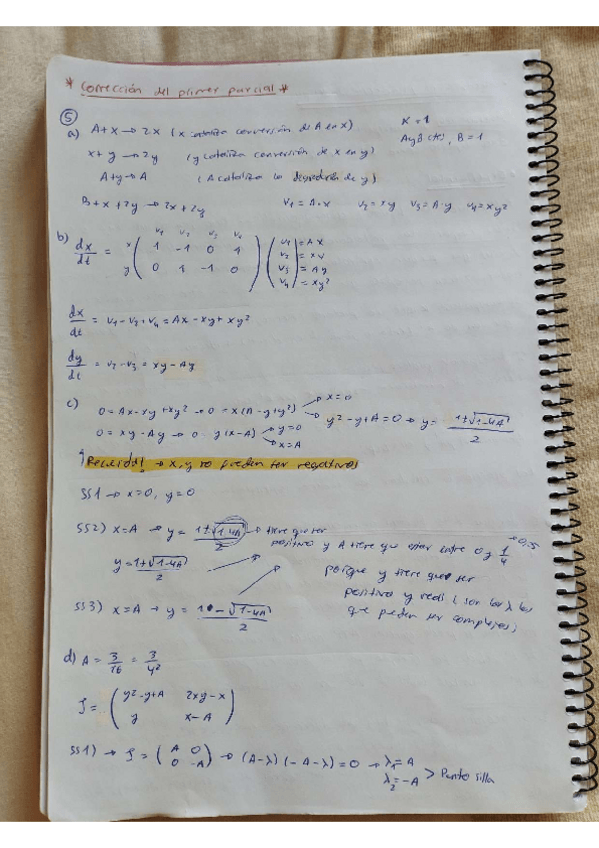 * Corrección del primer parcial *
5
a) A+x → 2x (x cataliza conversión de A en x) K=1
x+y → 2y (y cataliza conversión de x en y) A y B cte, B=1
A+y → A (A cataliza la degradación de y)
B+x+2y → 2x+2y V1=A·x V2=xy V3=A·y V4=xy²
b) dx/dt = x y ( V1 V2 V3 V4 1 -1 0 1 0 1 -1 0 ) ( V1 = Ax V2 = xy V3 = Ay V4 = xy² )
dx/dt = V1-V2+V4 = Ax-xy+xy²
dy/dt = V2-V3 = xy-Ay
c) 0=Ax-xy+xy² → 0=x(A-y+y²) → x=0 → y²-y+A=0 → y= 1±√1-4A / 2
0=xy-Ay → 0 y(x-A) → y=0 → x=A
¡Recuerda! → x,y no pueden ser negativos
SS1 → x=0, y=0
SS2) x=A → y= 1±√1-4A / 2 → tiene que ser positivo y A tiene que estar entre 0 y 1/4
y= 1+√1-4A / 2
porque y tiene que ser
positivo y real (son los λ los
que pueden ser complejos)
SS3) x=A → y= 1-√1-4A / 2
d) A= 3/16 = 3/4²
J= ( y²-y+A 2xy-x y x-A )
SS1) → J= ( A 0 0 -A ) → (A-λ)(-A-λ)=0 → λ1=A λ2=-A > Punto silla